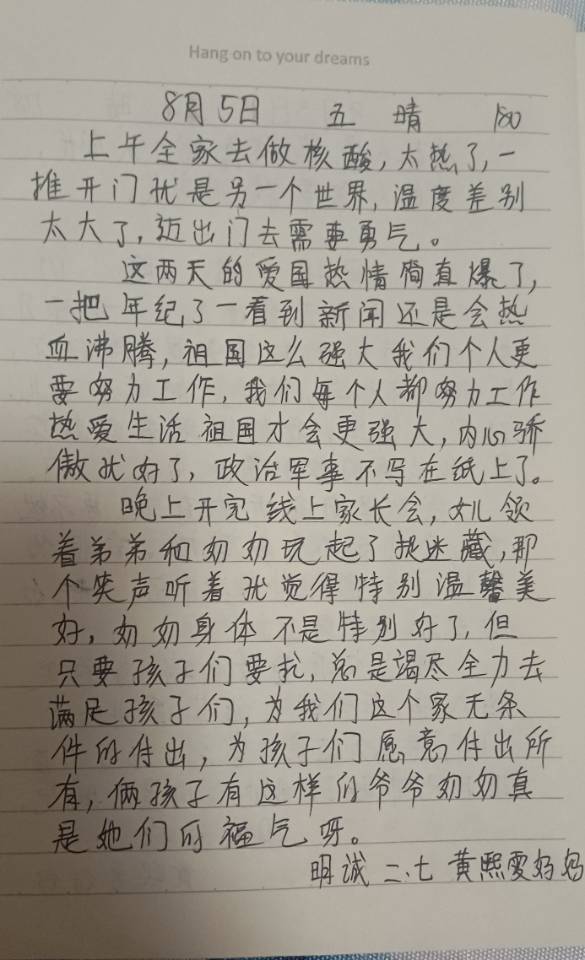 Hang on to your dreams
8月5日 五 晴 180
上午全家去做核酸，太热了，一
推开门就是另一个世界，温度差别
太大了，迈出门去需要勇气。
这两天的爱国热情简直爆了，
一把年纪了一看到新闻还是会热
血沸腾，祖国这么强大我们个人更
要努力工作，我们每个人都努力工作
热爱生活祖国才会更强大，内心骄
傲就好了，政治军事不写在纸上了。
晚上开完线上家长会，女儿领
着弟弟和奶奶玩起了捉迷藏，那
个笑声听着就觉得特别温馨美
好，奶奶身体不是特别好了，但
只要孩子们要找，总是竭尽全力去
满足孩子们，为我们这个家无条
件的付出，为孩子们愿意付出所
有，俩孩子有这样的爷爷奶奶真
是她们的福气呀。
明诚 二.七 黄熙雯妈妈